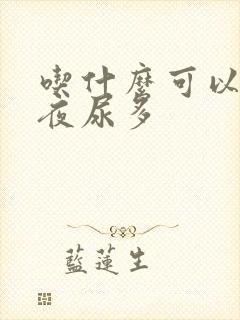 喫什麼可以
夜尿多
藍蓮生